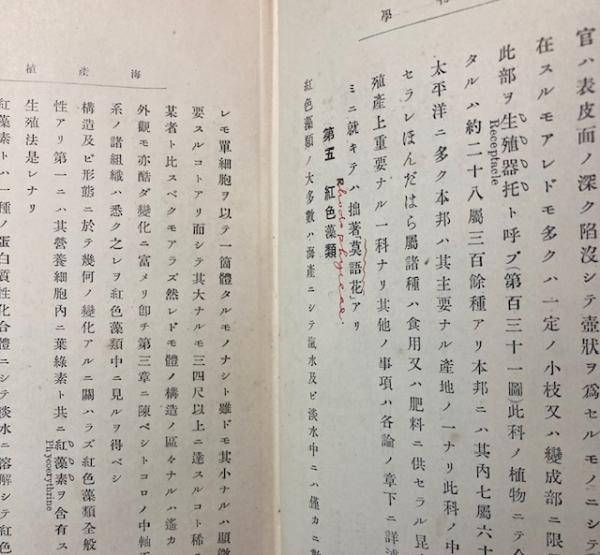 學
官ハ表皮面ノ深ク陷沒シテ壺狀ヲ爲セルモノニシ
在スルモアレドモ多クハ一定ノ小枝又ハ變成部ニ限
此部ヲ生殖器托ト呼ブ(第百三十一圖)此科ノ植物ニテ
Receptacle
タルハ約二十八屬三百餘種アリ本邦ニハ其內七屬六
太平洋ニ多ク本邦ハ其主要ナル產地ノ一ナリ此科ノ中
セラレほんだはら屬諸種ハ食用又ハ肥料ニ供セラル昆
殖產上重要ナル一科ナリ其他ノ事項ハ各論ノ章下ニ詳
ミニ就キテハ拙著「莫語花」アリ
Rhodophyceae.
第五 紅色藻類
紅色藻類ノ大多數ハ海產ニシテ鹹水及ビ淡水中ニハ僅カニ
海產植
レモ單細胞ヲ以テ一箇體タルモノナシト雖ドモ其小ナルハ顯微
要スルコトアリ而シテ其大ナルモ三四尺以上ニ達スルコト稀
某者ト比スベクモアラズ然レドモ體ノ構造ノ區々ナルハ遙カ
外觀モ亦酷ダ變化ニ富メリ卽チ第三章ニ陳ベシトコロノ中軸
系ノ諸組織ハ悉ク之レヲ紅色藻類中ニ見ルヲ得ベシ
構造及ビ形態ニ於テ幾何ノ變化アルニ關ハラズ紅色藻類全般
性アリ第一ニハ其營養細胞內ニ葉綠素ト共ニ紅藻素ヲ含有ス
Phycoerythrine
生殖法是レナリ
紅藻素トハ一種ノ蛋白質性化合體ニシテ淡水ニ溶解シテ紅色